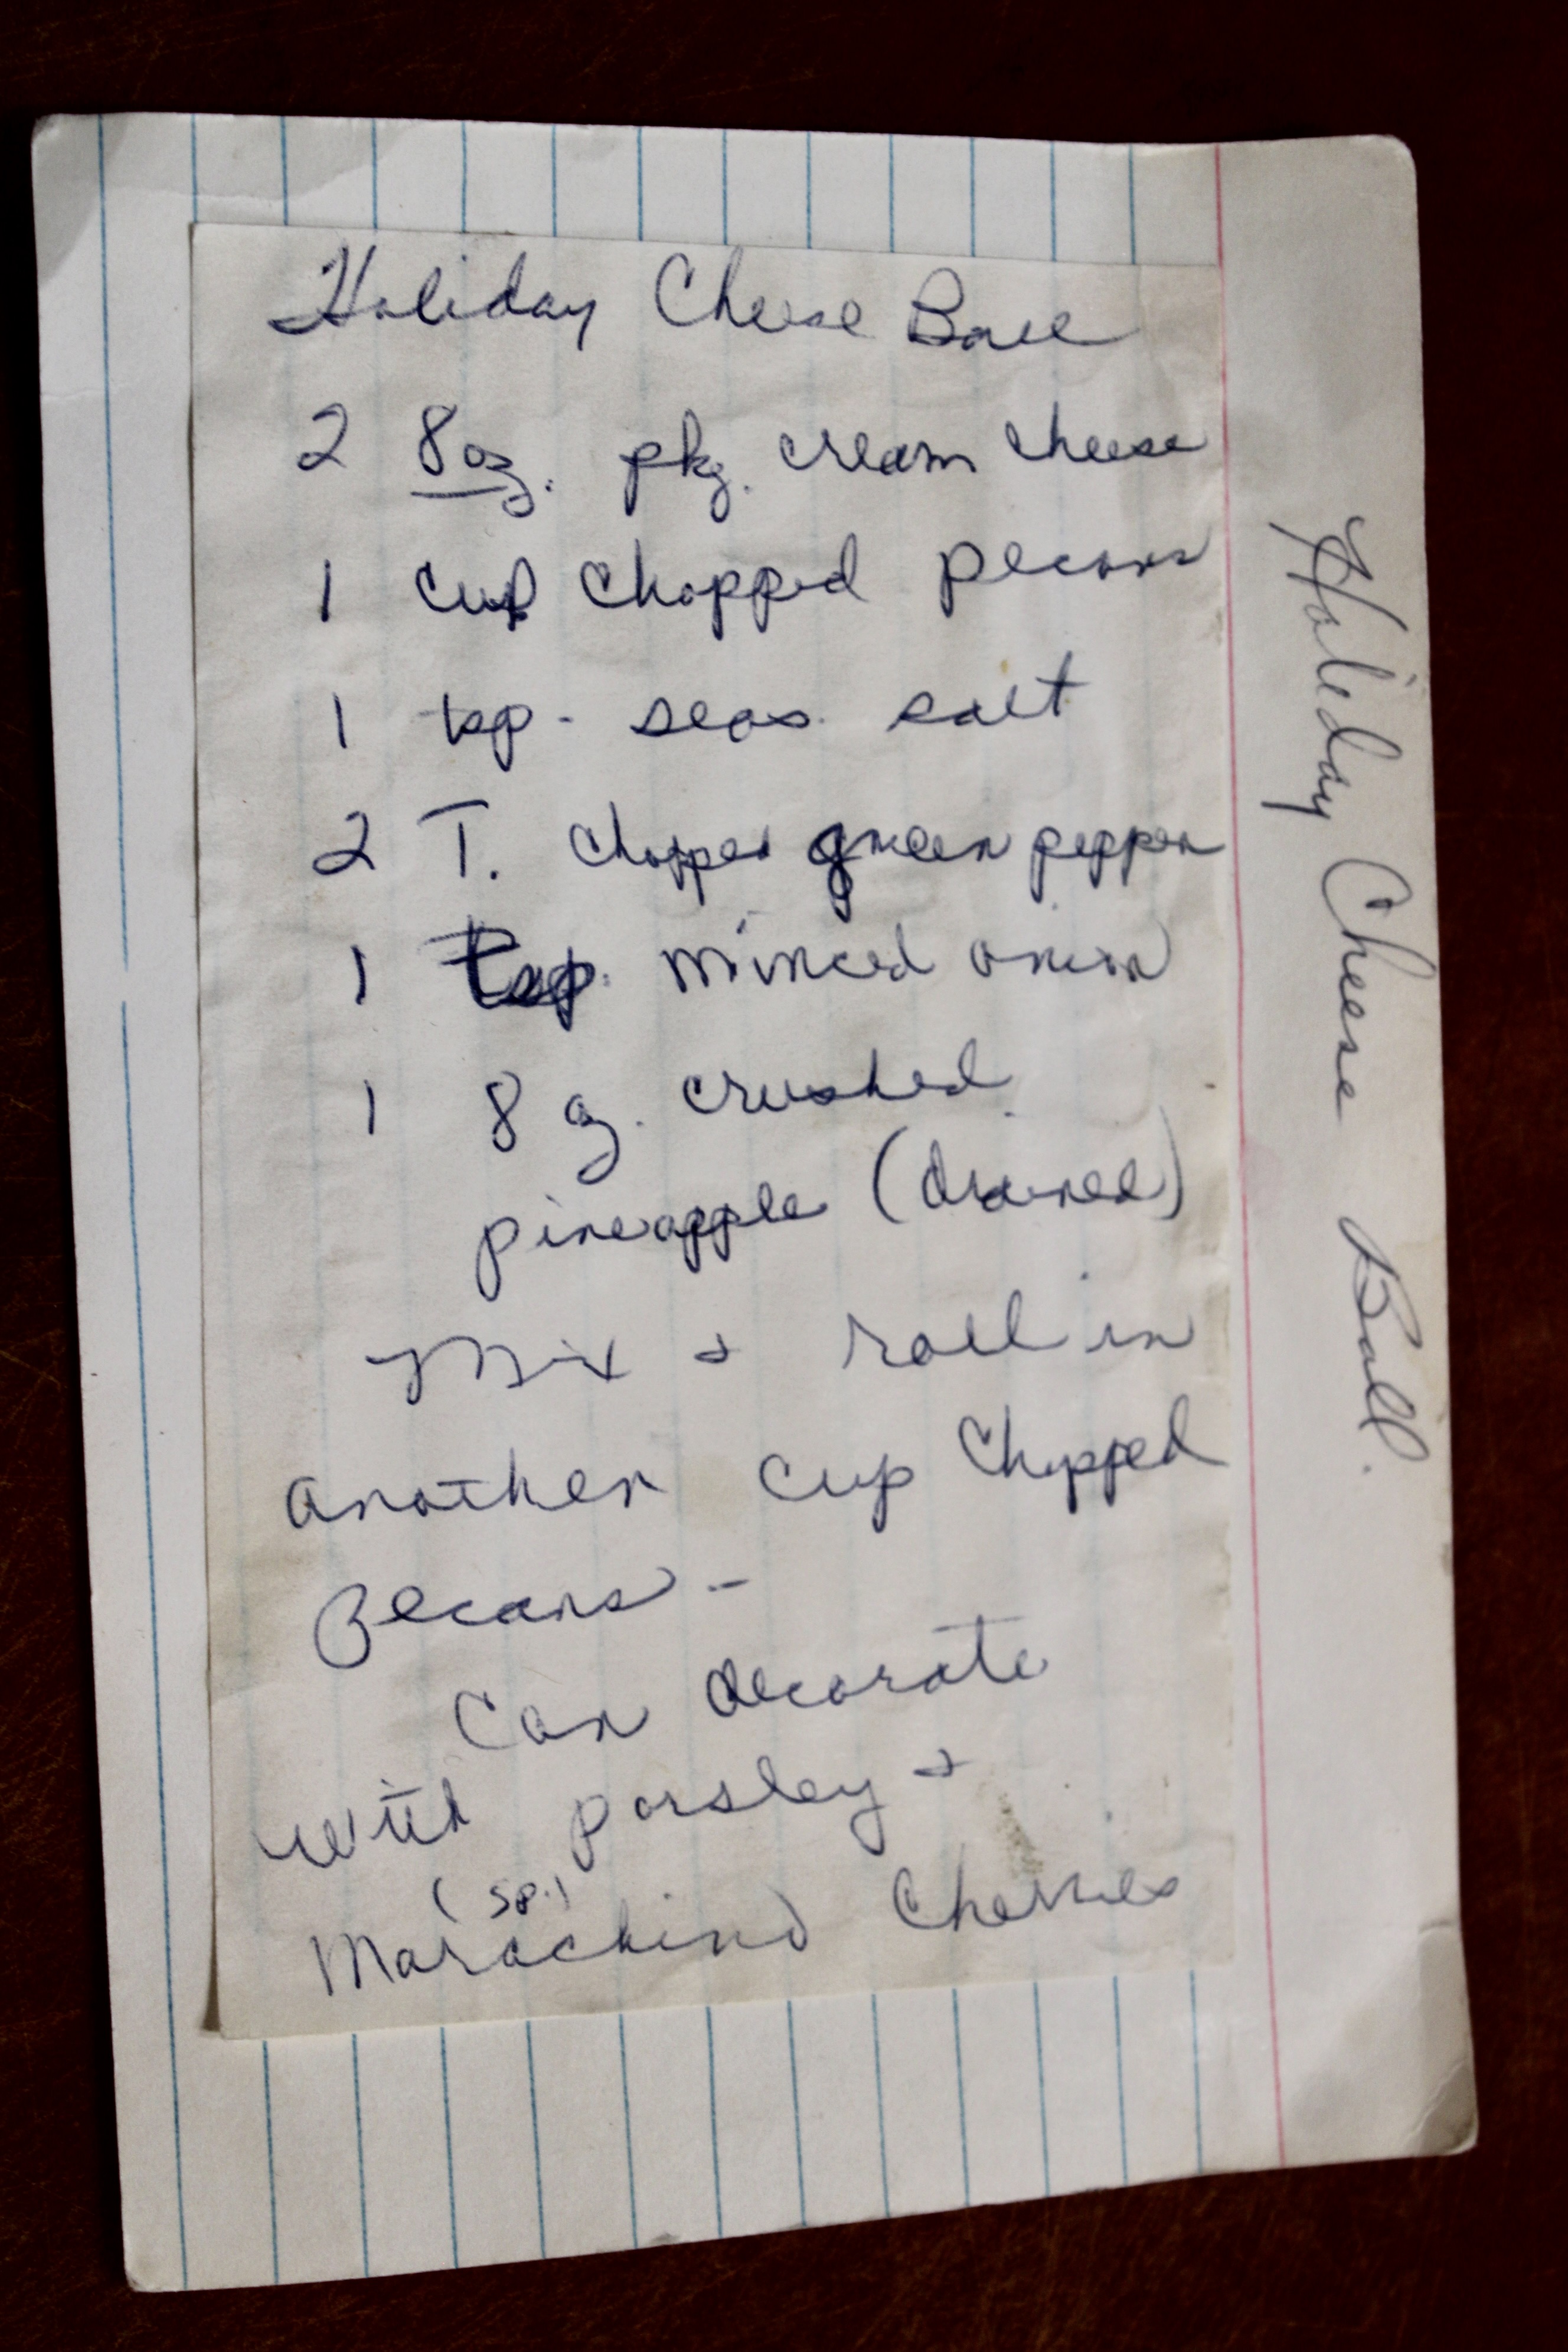 Holiday Cheese Ball
2 8 oz. pkg. cream cheese
1 cup chopped pecans
1 tsp. seas. salt
2 T. chopped green pepper
1 tsp. minced onion
1 8 oz. crushed
pineapple (drained)
Mix + roll in
another cup chopped
pecans -
Can decorate
with parsley +
(sp.)
Marachino Cherries
Holiday Cheese Ball